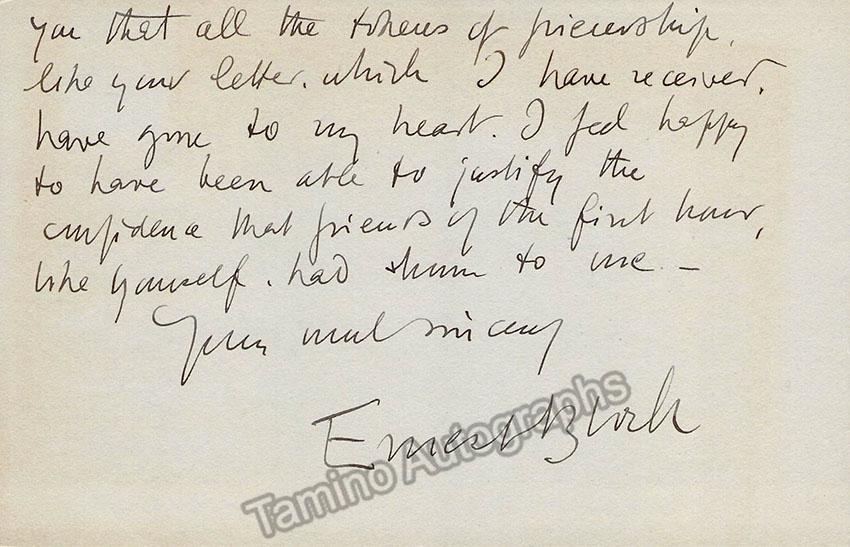 you that all the tokens of friendship,
like your letter, which I have received,
have gone to my heart. I feel happy
to have been able to justify the
confidence that friends of the first hour,
like yourself, had shown to me –
Yours most sincerely
Ernest Bloch
Tamino Autographs